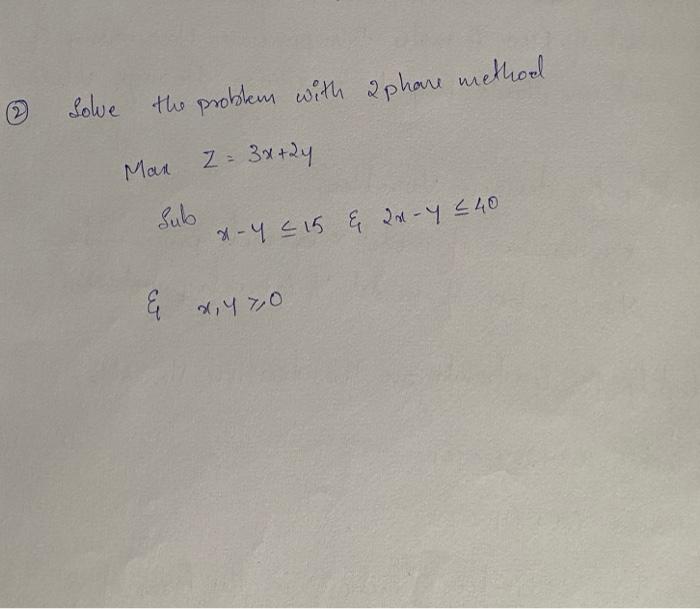 ② Solve the problem with 2 phase method
Max Z = 3x+2y
Sub
x-y ≤ 15 & 2x-y ≤ 40
& x, y ≥ 0